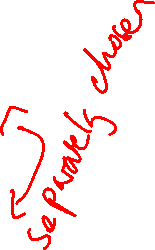 separately chosen